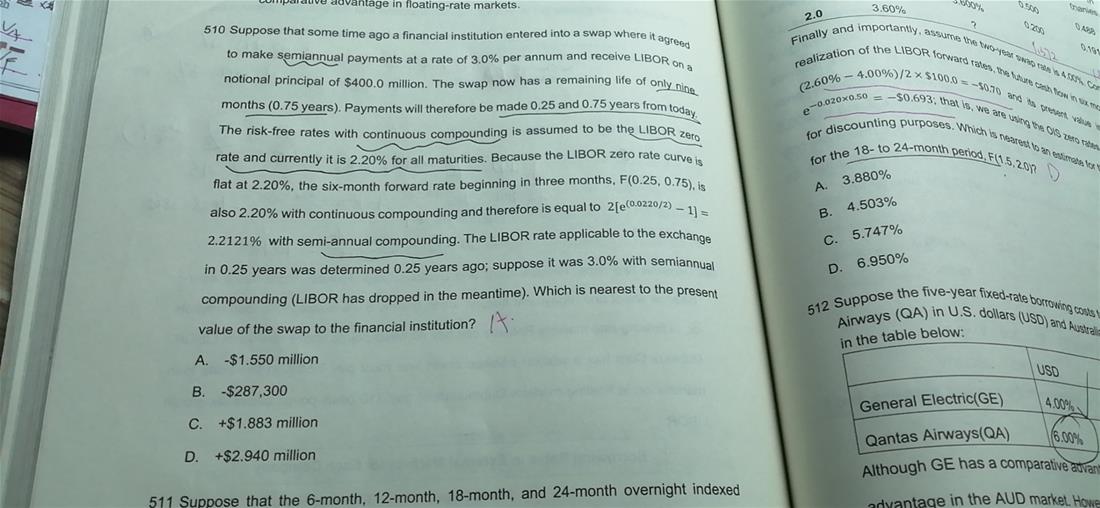 comparative advantage in floating-rate markets.
510 Suppose that some time ago a financial institution entered into a swap where it agreed
to make semiannual payments at a rate of 3.0% per annum and receive LIBOR on a
notional principal of $400.0 million. The swap now has a remaining life of only nine
months (0.75 years). Payments will therefore be made 0.25 and 0.75 years from today.
The risk-free rates with continuous compounding is assumed to be the LIBOR zero
rate and currently it is 2.20% for all maturities. Because the LIBOR zero rate curve is
flat at 2.20%, the six-month forward rate beginning in three months, F(0.25, 0.75), is
also 2.20% with continuous compounding and therefore is equal to 2[e^(0.0220/2) – 1] =
2.2121% with semi-annual compounding. The LIBOR rate applicable to the exchange
in 0.25 years was determined 0.25 years ago; suppose it was 3.0% with semiannual
compounding (LIBOR has dropped in the meantime). Which is nearest to the present
value of the swap to the financial institution? A.
A. -$1.550 million
B. -$287,300
C. +$1.883 million
D. +$2.940 million
511 Suppose that the 6-month, 12-month, 18-month, and 24-month overnight indexed
0.500
2.0 3.60% ? 0.200 0.488
Finally and importantly, assume the two-year swap rate is 4.00%.
realization of the LIBOR forward rates, the future cash flow in six
(2.60% – 4.00%)/2 × $100.0 = –$0.70 and its present value
e^–0.020×0.50 = –$0.693; that is, we are using the OIS zero rates
for discounting purposes. Which is nearest to an estimate for
for the 18- to 24-month period, F(1.5, 2.0)? D
A. 3.880%
B. 4.503%
C. 5.747%
D. 6.950%
512 Suppose the five-year fixed-rate borrowing costs
Airways (QA) in U.S. dollars (USD) and
in the table below:
USD
General Electric(GE) 4.00%
Qantas Airways(QA) 6.00%
Although GE has a comparative
advantage in the AUD market.